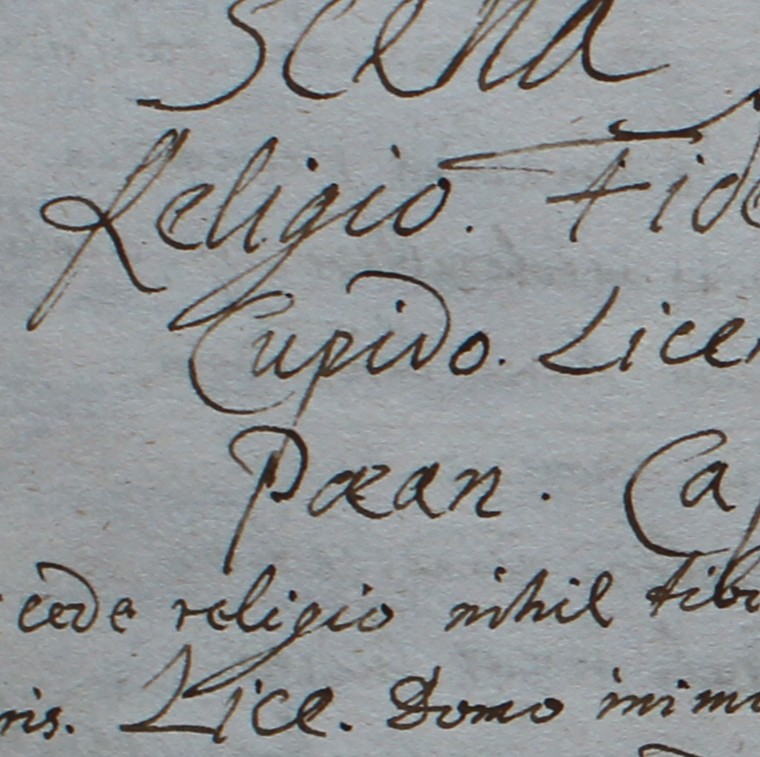 Scena
Religio. Fide
Cupido. Lice
Pæan. Ca
cede religio nihil tibi
ris. Lice. Domo inim